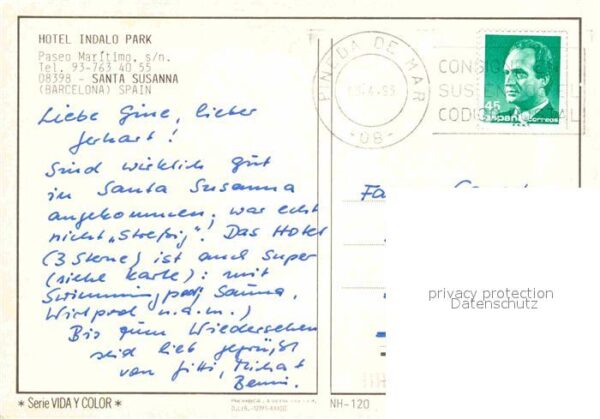 HOTEL INDALO PARK
Paseo Marítimo, s/n.
Tel. 93-763 40 55
08398 - SANTA SUSANNA
(BARCELONA) SPAIN
Liebe Gine, lieber
Gerhart!
Sind wirklich gut
in Santa Susanna
angekommen, war echt
nicht „Stressig“! Das Hotel
(3 Sterne) ist auch super
(siehe Karte): mit
Swimmingpool, Sauna,
Wirlpool u.a.m.)
Bis zum Wiedersehen
seid lieb gegrüßt
von Gitti, Michat
Benni.
* Serie VIDA Y COLOR *
PINEDA DE MAR
-4-93
-08-
CONSIG
SUS
CODI AL
45
España correos
Fa
privacy protection
Datenschutz
NH-120